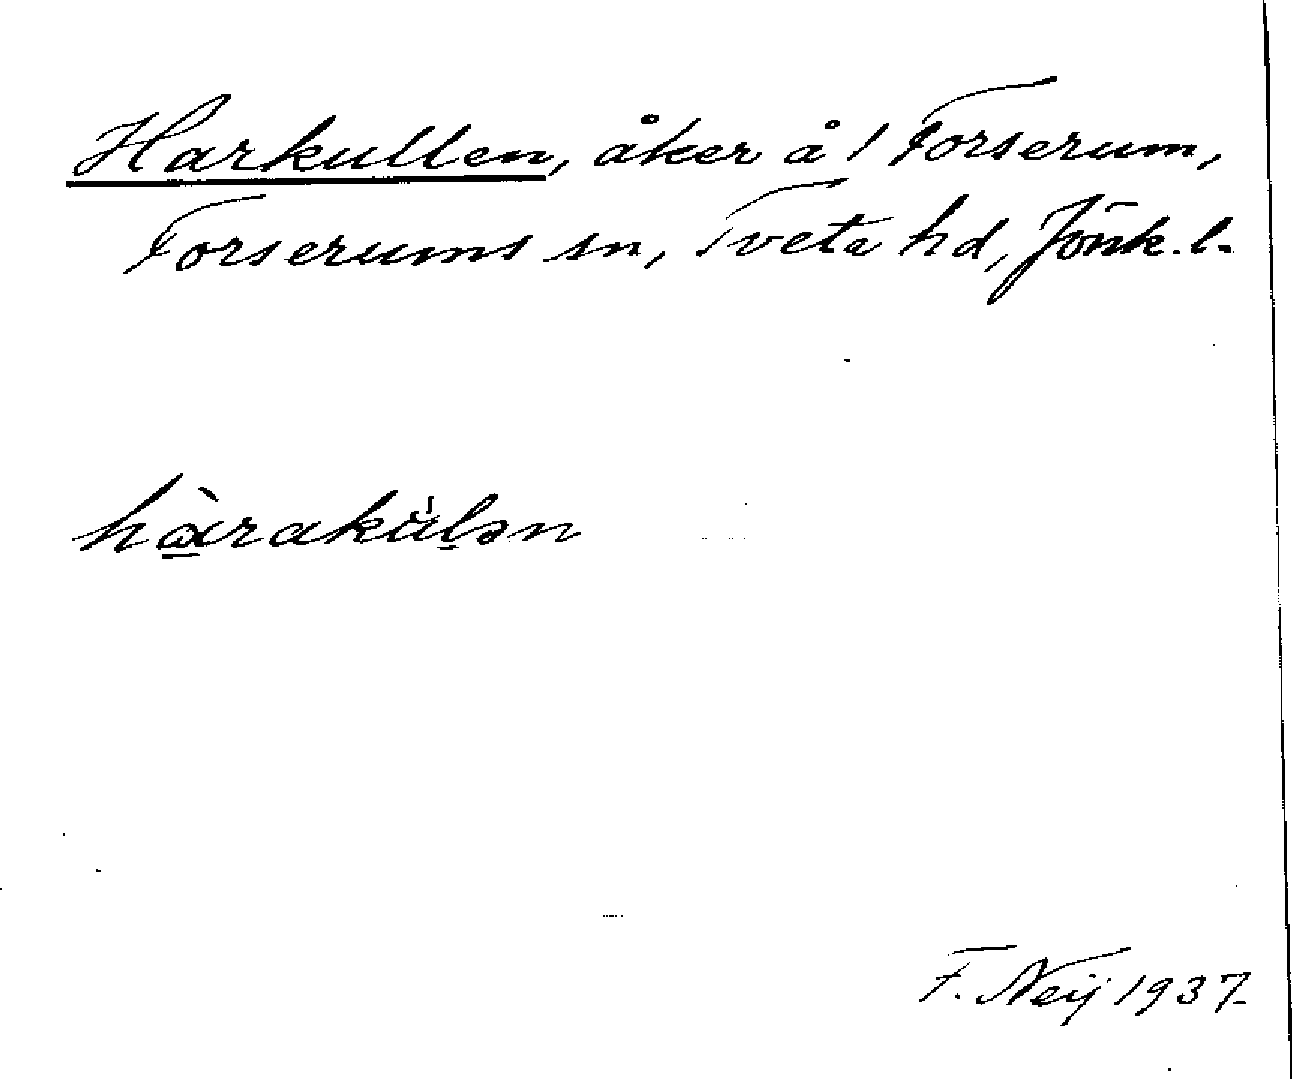 Harkullen, åker å 1 Forserum,
Forserums sn, Tveta hd, Jönk. l.
hàrakúlən
F. Neij 1937